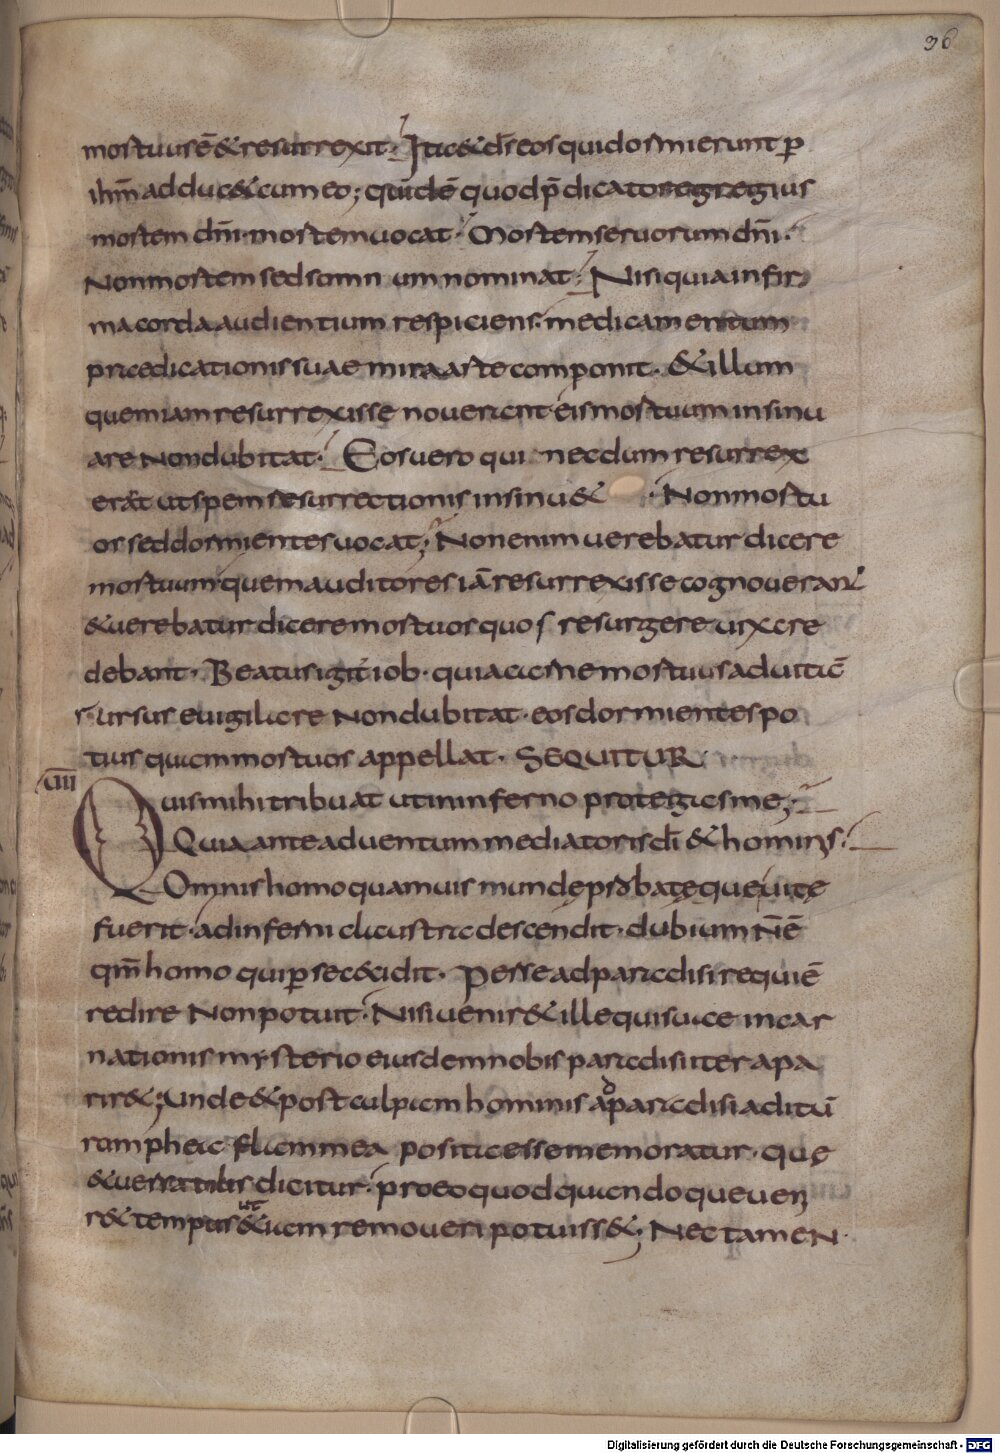 36
mortuus ē & resurrexit. Ita & d̄s eos qui dormierunt ꝑ
ihm̄ adduc& cum eo; quid ē quod p̄dicator egregius
mortem dn̄i mortem uocat. Mortem seruorum dn̄i.
Non mortem sed somnum nominat. Nisi quia infir
ma corda audientium respiciens. medicamentum
praedicationis suae mira arte componit. & illum
quem iam resurrexisse nouerant eis mortuum insinu
are non dubitat. Eos uero qui necdum resurrex
erant ut spem resurrectionis insinu&. Non mortu
os sed dormientes uocat; Non enim uerebatur dicere
mortuum quem auditores iā resurrexisse cognouerant
& uerebatur dicere mortuos quos resurgere uix cre
debant. Beatus igit iob. quia carne mortuus ad uitā
rursus euigilare non dubitat. eos dormientes po
tius quam mortuos appellat. SEQUITUR
CIII
Quis mihi tribuat ut in inferno protegas me;
Quia ante aduentum mediatoris dī & hominis.
Omnis homo quamuis mundę probatęque uitę
fuerit. ad inferni claustra descendit. dubium n̄ ē
qm̄ homo qui ꝑ se cecidit. Per se ad paradisi requiē
redire non potuit. Nisi uenir& ille qui suae incar
nationis mysterio eiusdem nobis paradisi iter apa
rir&; unde & post culpam hominis ad paradisi aditū
romphea flammea posita esse memoratur. que
& uersatilis dicitur. pro eo quod quandoque uen
r& tempus ut & iam remoueri potuiss&; Nec tamen
Digitalisierung gefördert durch die Deutsche Forschungsgemeinschaft - DFG